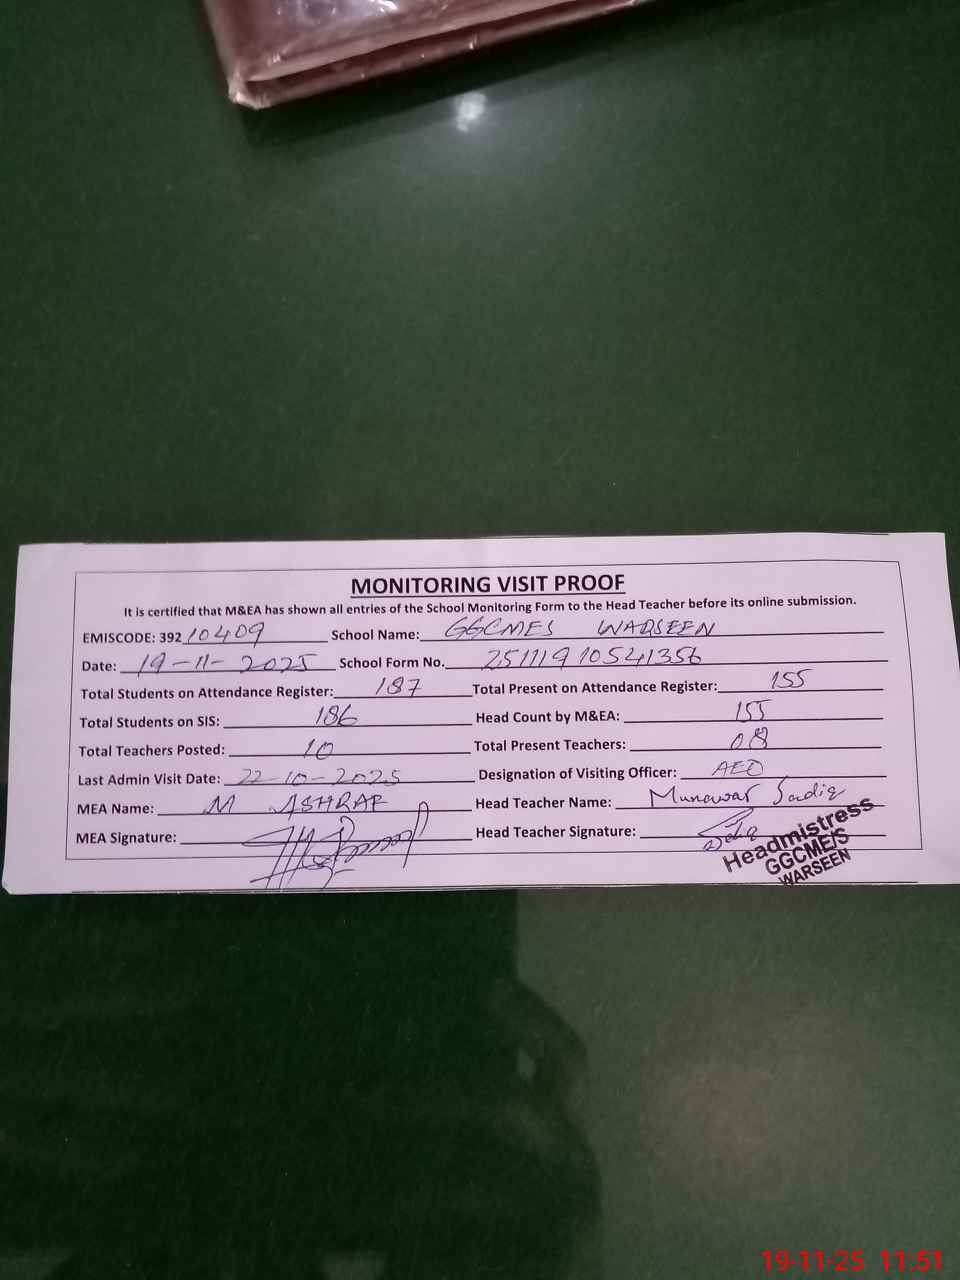 MONITORING VISIT PROOF
It is certified that M&EA has shown all entries of the School Monitoring Form to the Head Teacher before its online submission.
EMISCODE: 392 10409 School Name: GGCMES WARSEEN
Date: 19-11-2025 School Form No. 25111910541356
Total Students on Attendance Register: 187 Total Present on Attendance Register: 155
Total Students on SIS: 186 Head Count by M&EA: 155
Total Teachers Posted: 10 Total Present Teachers: 08
Last Admin Visit Date: 22-10-2025 Designation of Visiting Officer: AEO
MEA Name: M ASHRAF Head Teacher Name: Munawar Sadiq
MEA Signature: Head Teacher Signature:
Headmistress
GGCME/S
WARSEEN
19-11-25 11:51